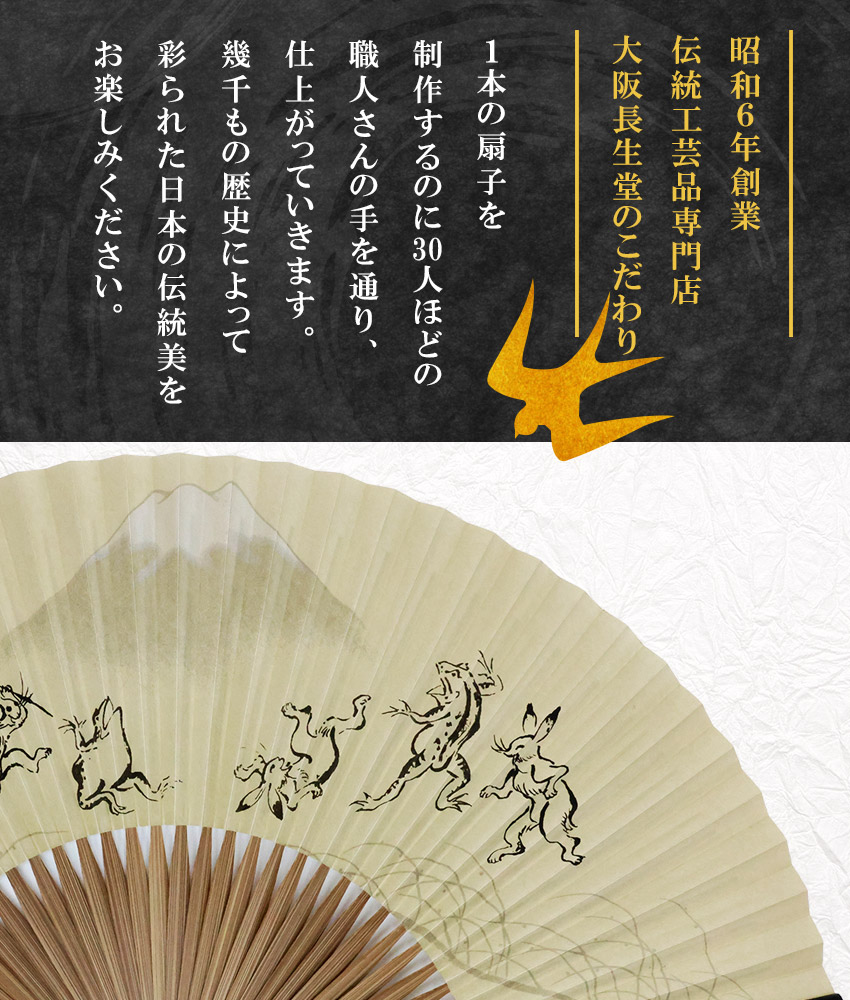 昭和6年創業
伝統工芸品専門店
大阪長生堂のこだわり
1本の扇子を
制作するのに30人ほどの
職人さんの手を通り、
仕上がっていきます。
幾千もの歴史によって
彩られた日本の伝統美を
お楽しみください。